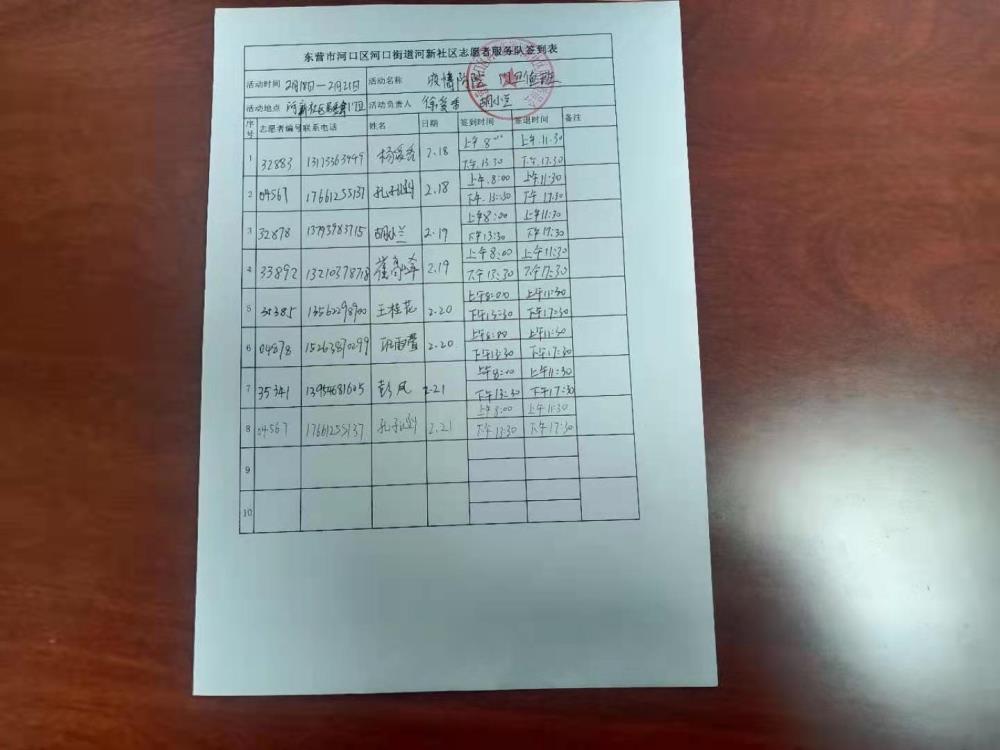 东营市河口区河口街道河新社区志愿者服务队签到表
活动时间 2月18日—2月21日 活动名称 疫情防控 门卫值班
活动地点 河新社区 17区 活动负责人 胡小兰
序号 志愿者编号 联系电话 姓名 日期 签到时间 签退时间 备注
1 32883 13173363449 2.18 上午8:00 上午11:30
下午13:30 下午17:30
2 04567 17661255137 2.18 上午8:00 上午11:30
下午13:30 下午17:30
3 32878 13793983715 胡小兰 2.19 上午8:00 上午11:30
下午13:30 下午17:30
4 33892 13210378718 2.19 上午8:00 上午11:30
下午13:30 下午17:30
5 35385 13562298900 王桂花 2.20 上午8:00 上午11:30
下午13:30 下午17:30
6 04878 15263870299 2.20 上午8:00 上午11:30
下午13:30 下午17:30
7 35341 13954681605 彭凤 2.21 上午8:00 上午11:30
下午13:30 下午17:30
8 04567 17661255137 2.21 上午8:00 上午11:30
下午13:30 下午17:30
9
10